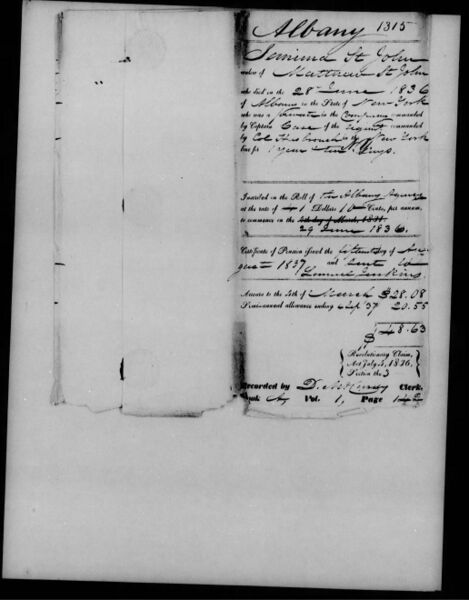 Albany 1315
Jemima St John
widow of Matthew St John
who died on the 28 June 1836
of Albany in the State of New York
who was a private in the Company commanded
by Captain Case of the Regiment commanded
by Col Hasbrouck in the New York
line for 1 year
Inscribed on the Roll of the Albany Agency
at the rate of 41 Dollars 10 Cents, per annum,
to commence on the 4th day of March, 1831.
29 June 1836.
Certificate of Pension issued the day of Au-
gust 1837 and sent to
Lemuel Jenkins
Arrears to the 4th of March $28.08
Semi-annual allowance ending 4 Sep '37 20.55
$48.63
Revolutionary Claim,
Act July 4, 1836,
Section the 3
Recorded by D. McCurdy Clerk.
Book A, Vol. 1, Page